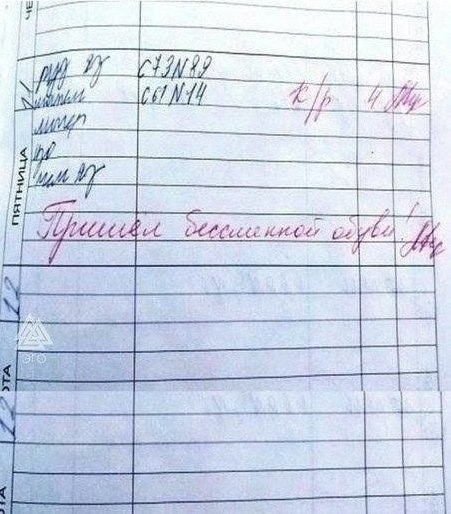 ЧЕ
рус яз с73N89
матем с61N14 к/р 4
литер
ПЯТНИЦА
Пришёл бессменной обуви!
12
ЭГО
ОТА
12
ОТА